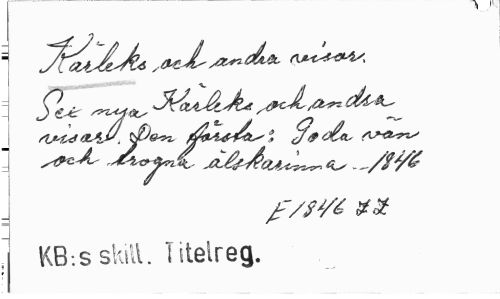 Kärleks och andra visor.
Sex nya Kärleks och andra
visor. Den första: Goda vän
och trogna älskarinna - 1846
E 1846 zz
KB:s skill. Titelreg.